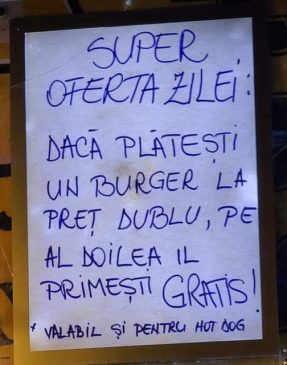 SUPER
OFERTA ZILEI:
DACĂ PLĂTEȘTI
UN BURGER LA
PREȚ DUBLU, PE
AL DOILEA IL
PRIMEȘTI GRATIS!
* VALABIL ȘI PENTRU HOT DOG